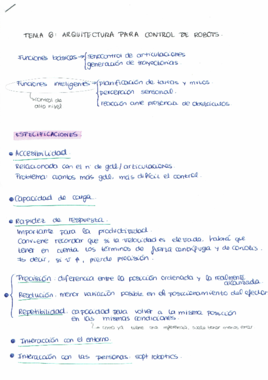 TEMA 6: ARQUITECTURA PARA CONTROL DE ROBOTS.
Funciones básicas → servocontrol de articulaciones
generación de trayectorias
Funciones inteligentes → planificación de tareas y rutas
control de alto nivel → percepción sensorial
→ reacción ante presencia de obstáculos
ESPECIFICACIONES
• Accesibilidad
Relacionada con el nº de gdl / articulaciones
Problema: cuantos más gdl, más difícil el control.
• Capacidad de carga.
• Rapidez de respuesta.
Importante para la productividad.
Conviene recordar que si la velocidad es elevada, habrá que
tener en cuenta los términos de fuerza centrífuga y de coriolis.
Es decir, si v ↑, pierdo precisión.
Precisión: diferencia entre la posición ordenada y la realmente alcanzada.
Resolución: menor variación posible en el posicionamiento del efector
Repetibilidad: capacidad para volver a la misma posición
en las mismas condiciones.
• Interacción con el entorno
• Interacción con las personas soft robotics